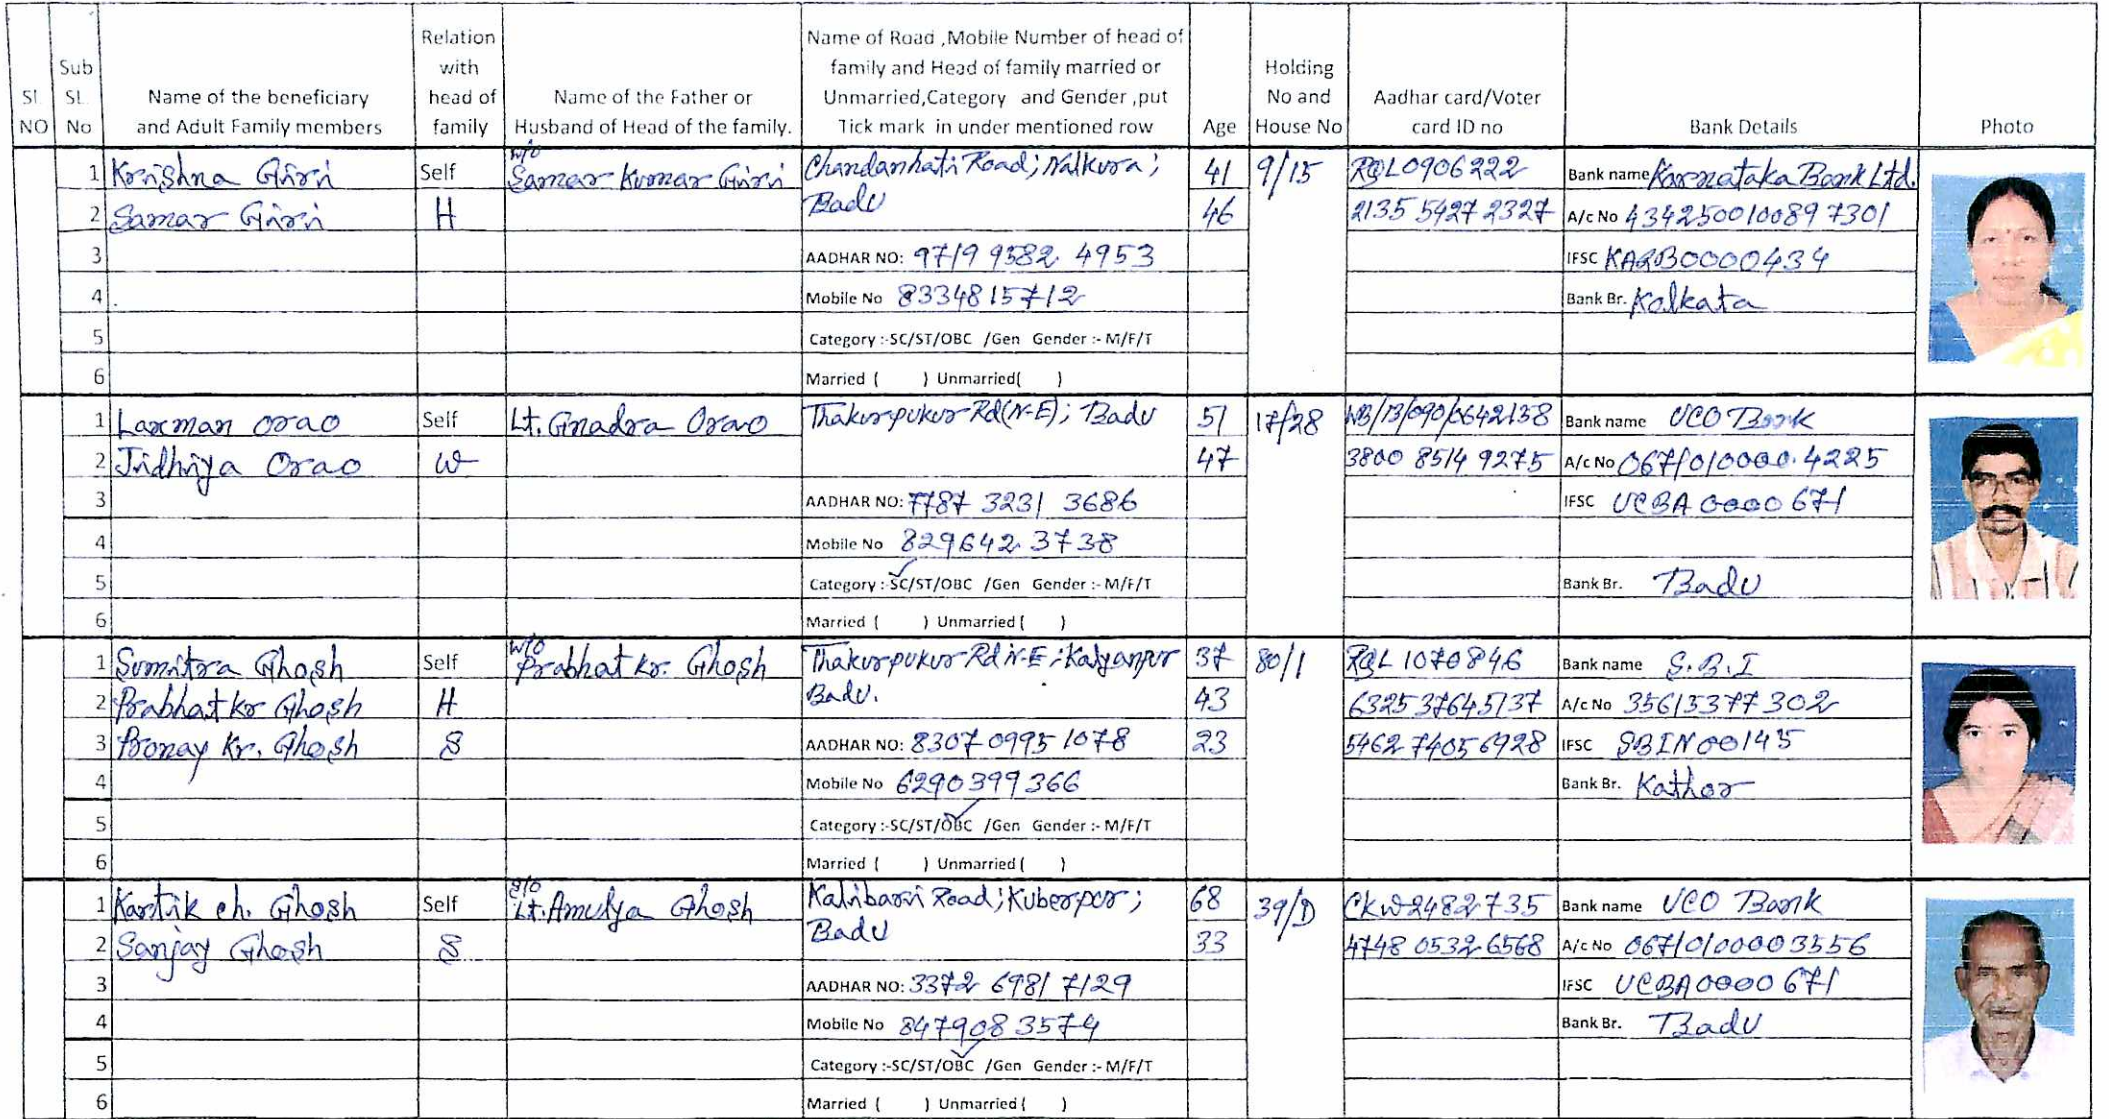 Sl NO
Sub SL No
Name of the beneficiary and Adult Family members
Relation with head of family
Name of the Father or Husband of Head of the family.
Name of Road ,Mobile Number of head of family and Head of family married or Unmarried,Category and Gender ,put Tick mark in under mentioned row
Age
Holding No and House No
Aadhar card/Voter card ID no
Bank Details
Photo
1 Krishna Giri Self W/O Samar Kumar Giri Chandanhati Road; Nalkura; 41 9/15 RQL0906222 Bank name Karnataka Bank Ltd.
2 Samar Giri H Badu 46 2135 5427 2327 A/c No 4342500100897301
3 AADHAR NO: 9719 9582 4953 IFSC KARB0000434
4 Mobile No 8334815712 Bank Br. Kolkata
5 Category :-SC/ST/OBC /Gen Gender :- M/F/T
6 Married ( ) Unmarried( )
1 Laxman Orao Self Lt. Gnadra Orao Thakurpukur Rd(N-E); Badu 51 17/28 WB/13/090/0642138 Bank name UCO Bank
2 Jidhiya Orao W 47 3800 8514 9275 A/c No 06710100004225
3 AADHAR NO: 7787 3231 3686 IFSC UCBA0000671
4 Mobile No 8296423738
5 Category :-SC/ST/OBC /Gen Gender :- M/F/T Bank Br. Badu
6 Married ( ) Unmarried ( )
1 Sumitra Ghosh Self W/O Prabhat kr. Ghosh Thakurpukur Rd N-E; Kalyanpur 37 80/1 RQL1070846 Bank name S.B.I
2 Prabhat kr Ghosh H Badu. 43 6325 3764 5137 A/c No 35613377302
3 Pronay Kr. Ghosh S AADHAR NO: 8307 0995 1078 23 5462 7405 6928 IFSC SBIN00145
4 Mobile No 6290399366 Bank Br. Kathor
5 Category :-SC/ST/OBC /Gen Gender :- M/F/T
6 Married ( ) Unmarried ( )
1 Kartik ch. Ghosh Self S/O Lt. Amulya Ghosh Kalibari Road; Kuberpur; 68 39/D CKW2482735 Bank name UCO Bank
2 Sanjay Ghosh S Badu 33 4748 0532 6568 A/c No 06710100003556
3 AADHAR NO: 3372 6981 7129 IFSC UCBA0000671
4 Mobile No 8479083574 Bank Br. Badu
5 Category :-SC/ST/OBC /Gen Gender :- M/F/T
6 Married ( ) Unmarried ( )